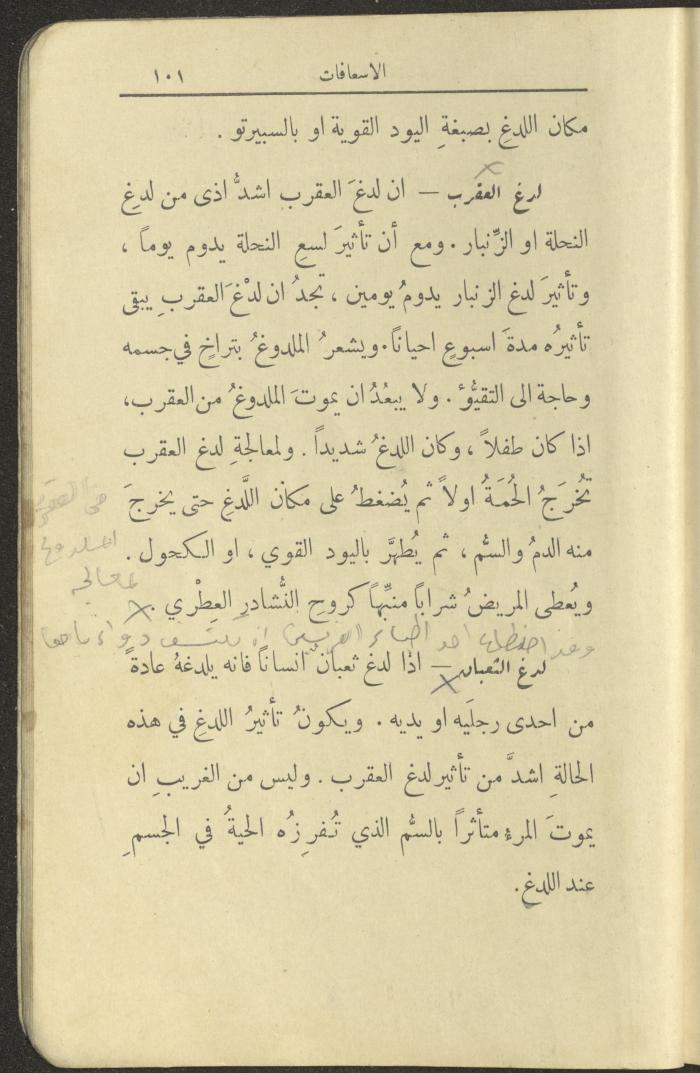 الاسعافات ١٠١
مكان اللدغِ بصبغةِ اليود القوية او بالسبيرتو .
لدغ العقرب — ان لدغَ العقرب اشدُّ اذى من لدغ
النحلة او الزِّنبار . ومع أن تأثيرَ لسعِ النحلة يدوم يوماً ،
وتأثيرَ لدغ الزنبار يدومُ يومين ، تجدُ ان لدْغَ العقربِ يبقى
تأثيرُه مدةَ اسبوعٍ احياناً . ويشعرُ الملدوغُ بتراخٍ في جسمه
وحاجة الى التقيُّؤ . ولا يبعُدُ ان يموتَ الملدوغُ من العقرب ،
اذا كان طفلاً ، وكان اللدغُ شديداً . ولمعالجةِ لدغ العقرب
تُخرَجُ الحُمَةُ اولاً ثم يُضغطُ على مكان اللَّدغِ حتى يخرجَ
منه الدمُ والسُّم ، ثم يُطهَّر باليود القوي ، او الكحول .
ويُعطى المريضُ شراباً منبِّهاً كروحِ النُّشادرِ العِطْري .
لمعالجة
لدغ الثعبان — اذا لدغ ثعبان انساناً فانه يلدغهُ عادةً
من احدى رجلَيه او يديه . ويكونُ تأثيرُ اللدغِ في هذه
الحالةِ اشدَّ من تأثير لدغ العقرب . وليس من الغريبِ ان
يموتَ المرءُ متأثراً بالسُّم الذي تُفرِزُه الحيةُ في الجسمِ
عند اللدغ .